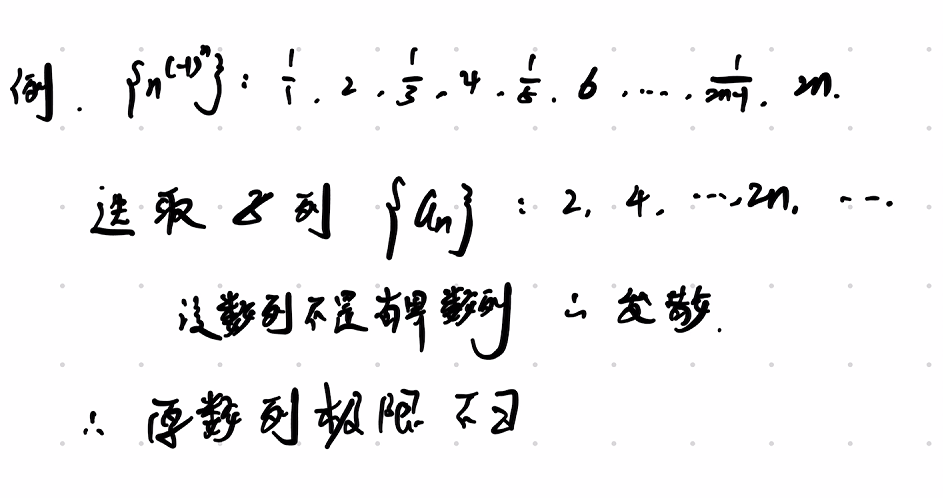 例. {n^{(-1)^n}} : 1/1, 2, 1/3, 4, 1/5, 6, ..., 1/(2n-1), 2n.
选取子列 {a_n} : 2, 4, ..., 2n, ...
该数列不是有界数列 ∴ 发散.
∴ 原数列极限不